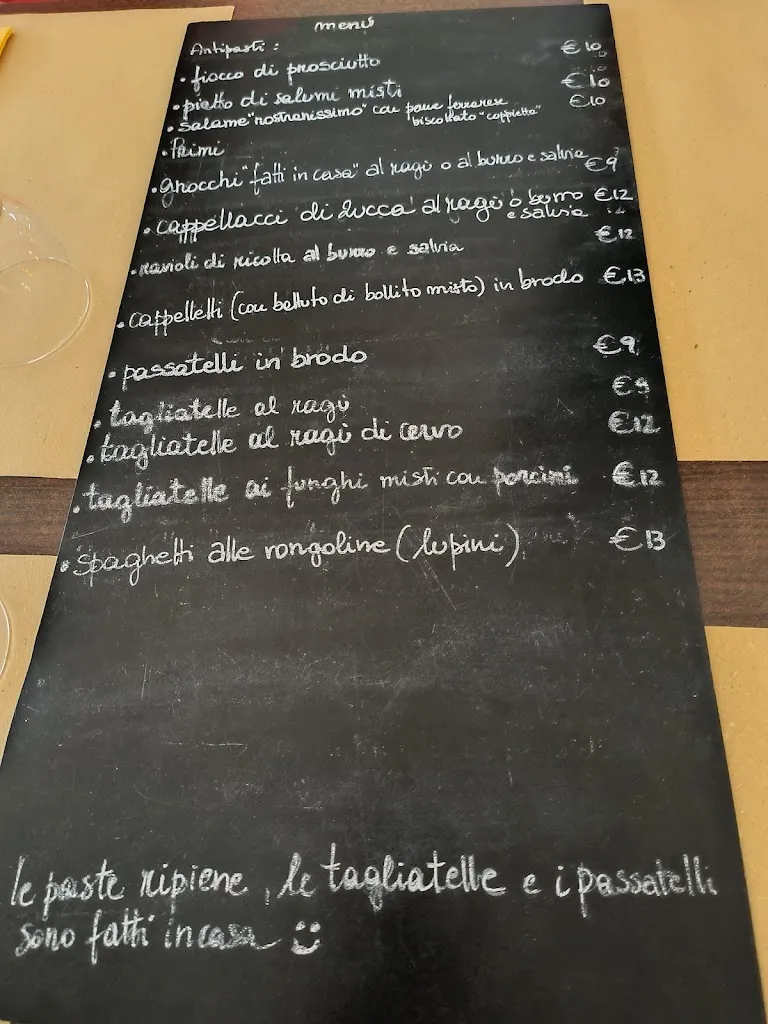 menù
Antipasti:
• fiocco di prosciutto €10
• piatto di salumi misti €10
• salame "nostranissimo" con pane ferrarese €10
biscottato "coppietta"
• Primi
• gnocchi "fatti in casa" al ragù o al burro e salvia €9
• cappellacci di zucca al ragù o burro €12
e salvia
• ravioli di ricotta al burro e salvia €12
• cappelletti (con battuto di bollito misto) in brodo €13
• passatelli in brodo €9
• tagliatelle al ragù €9
• tagliatelle al ragù di cervo €12
• tagliatelle ai funghi misti con porcini €12
• spaghetti alle vongoline (lupini) €13
le paste ripiene, le tagliatelle e i passatelli
sono fatti in casa